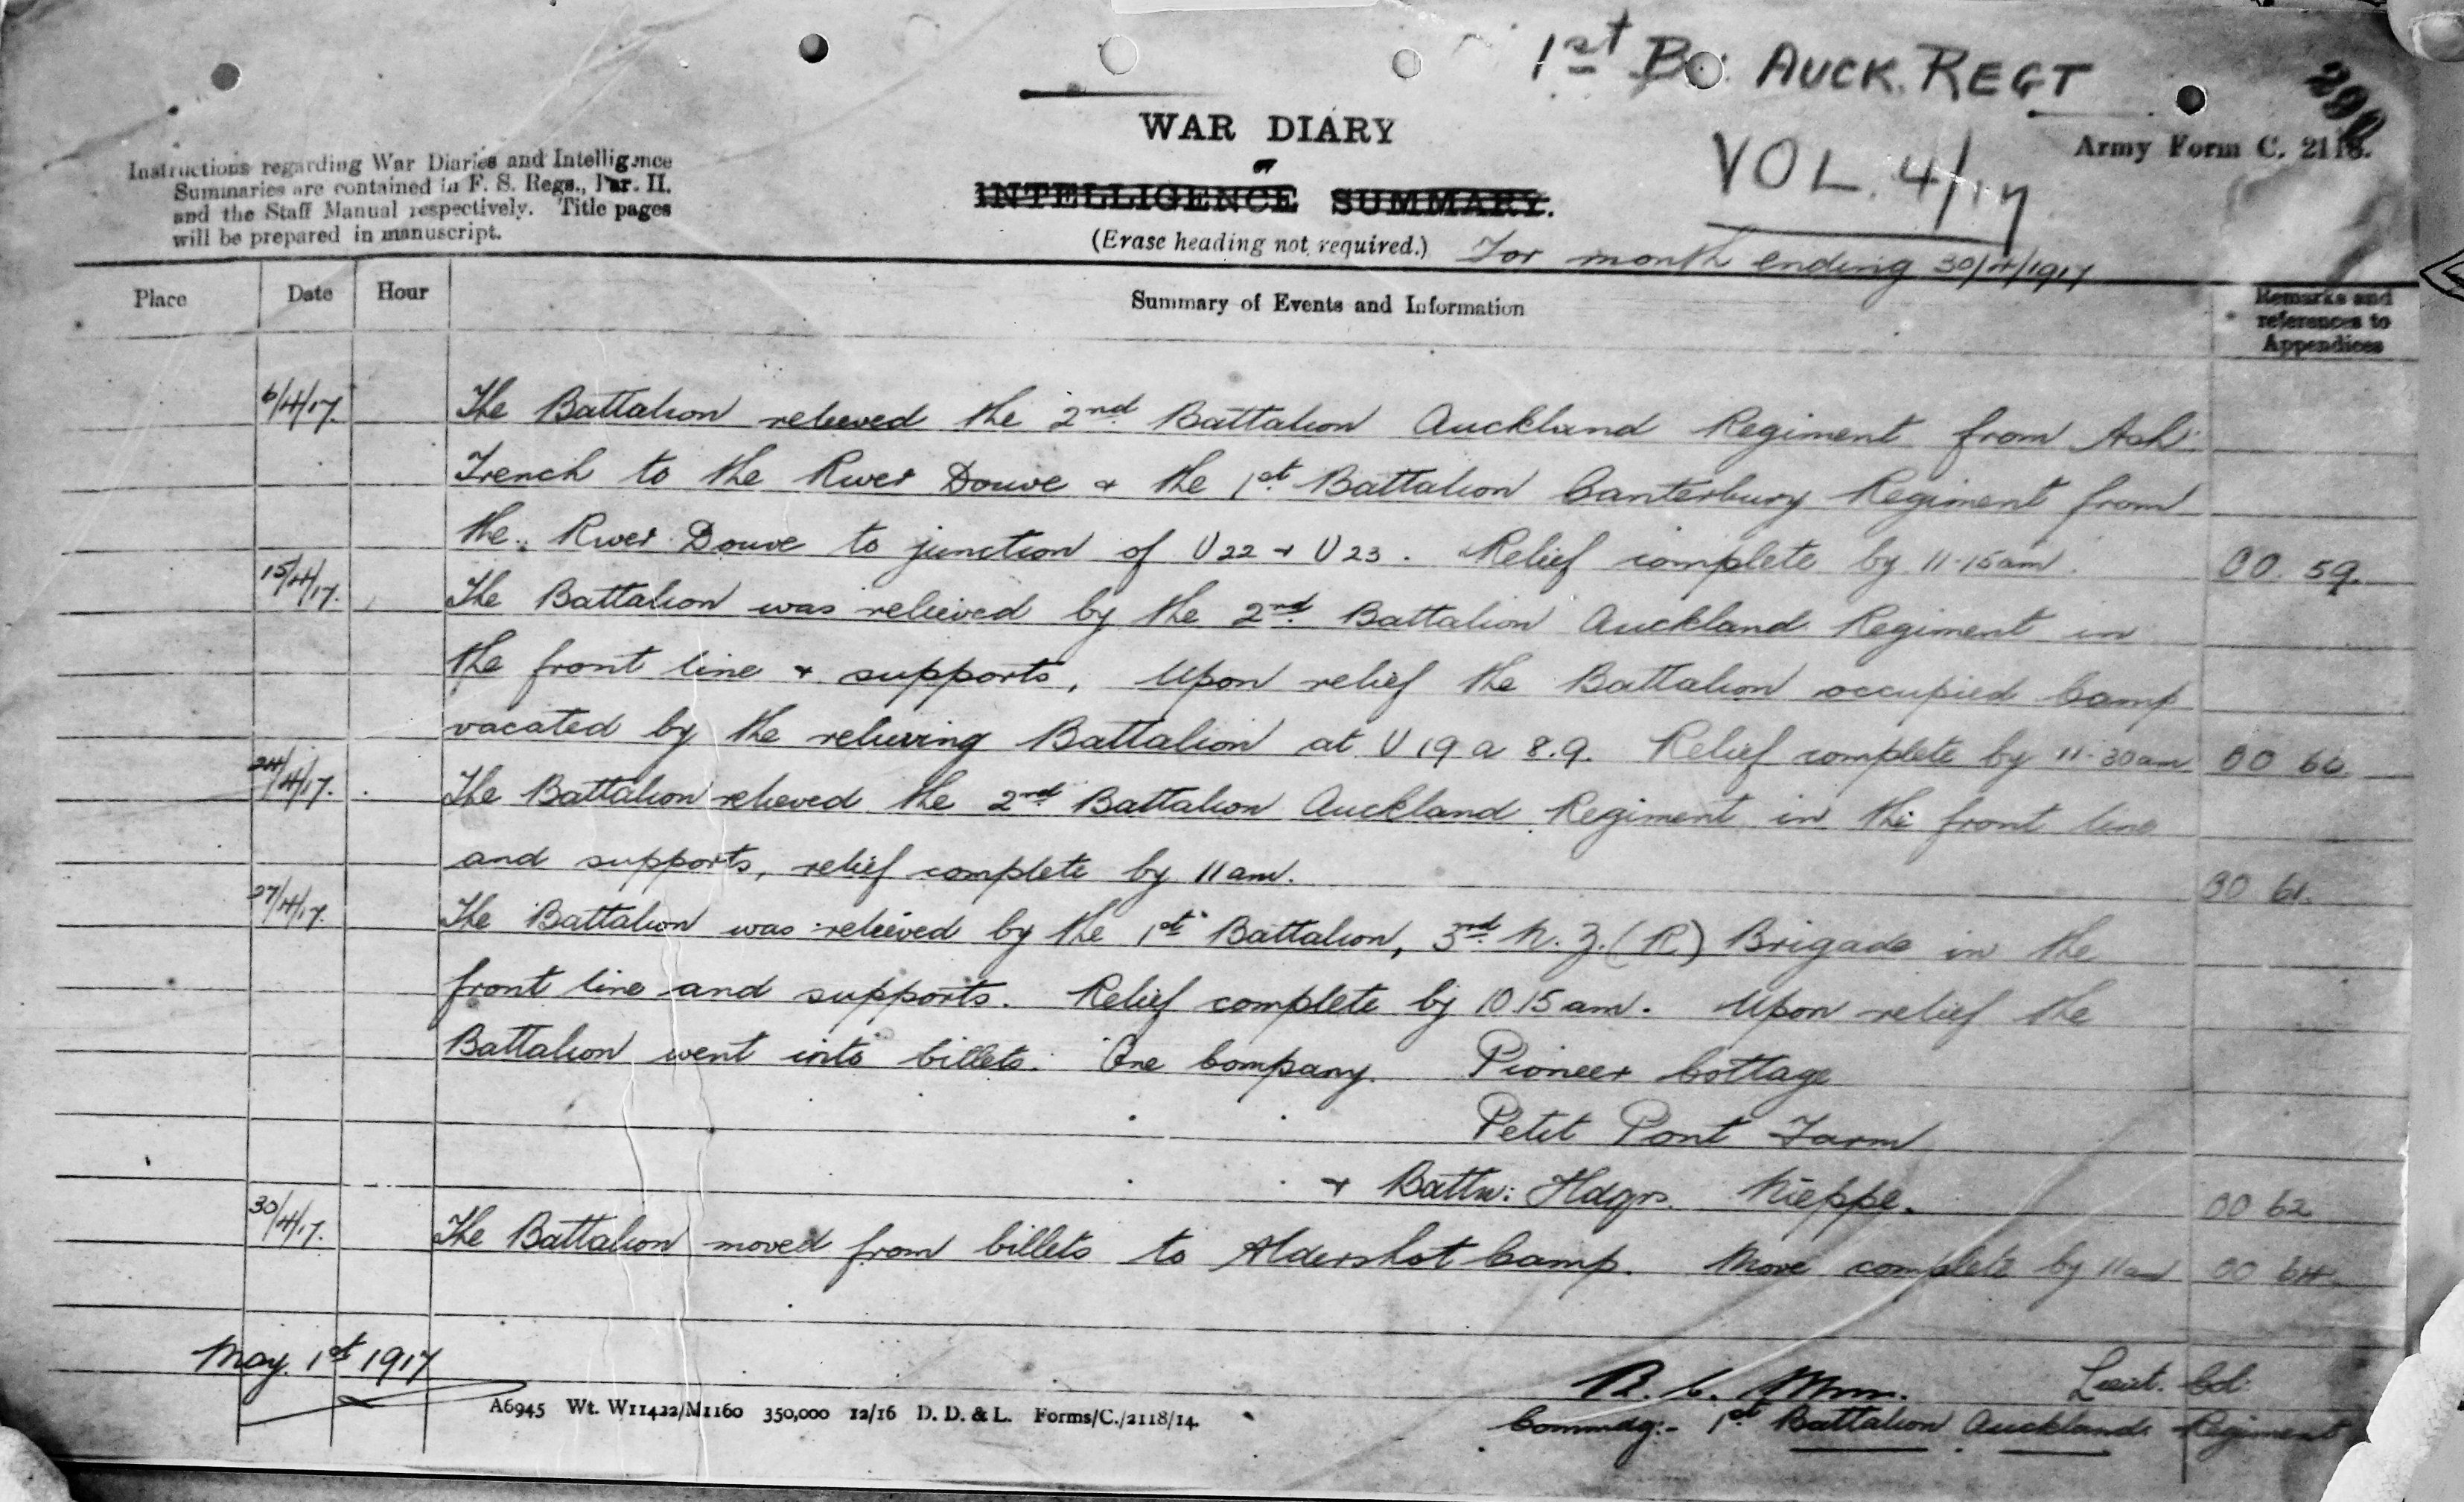 1st Bn AUCK. REGT
WAR DIARY
or
INTELLIGENCE SUMMARY.
(Erase heading not required.)
For month ending 30/4/1917
VOL. 4/17
Army Form C. 2118.
Instructions regarding War Diaries and Intelligence
Summaries are contained in F. S. Regs., Par. II.
and the Staff Manual respectively. Title pages
will be prepared in manuscript.
Place Date Hour Summary of Events and Information Remarks and
references to
Appendices
6/4/17. The Battalion relieved the 2nd Battalion Auckland Regiment from Ash
Trench to the River Douve & the 1st Battalion Canterbury Regiment from
the River Douve to junction of U22 & U23. Relief complete by 11-15am. OO. 59
15/4/17. The Battalion was relieved by the 2nd Battalion Auckland Regiment in
the front line & supports, Upon relief the Battalion occupied Camp
vacated by the relieving Battalion at U19a 8.9. Relief complete by 11-30am OO 60
24/4/17. The Battalion relieved the 2nd Battalion Auckland Regiment in the front line
and supports, relief complete by 11am. OO 61.
27/4/17. The Battalion was relieved by the 1st Battalion, 3rd N.Z.(R) Brigade in the
front line and supports. Relief complete by 10 15am. Upon relief the
Battalion went into billets. One Company. Pioneer Cottage
Petit Pont Farm
& Battn: Hdqrs. Nieppe. OO 62
30/4/17. The Battalion moved from billets to Aldershot Camp. Move complete by 11am OO 64.
May. 1st 1917
Lieut. Col.
Commdg:- 1st Battalion Auckland Regiment
A6945 Wt. W11422/M1160 350,000 12/16 D. D. & L. Forms/C./2118/14.